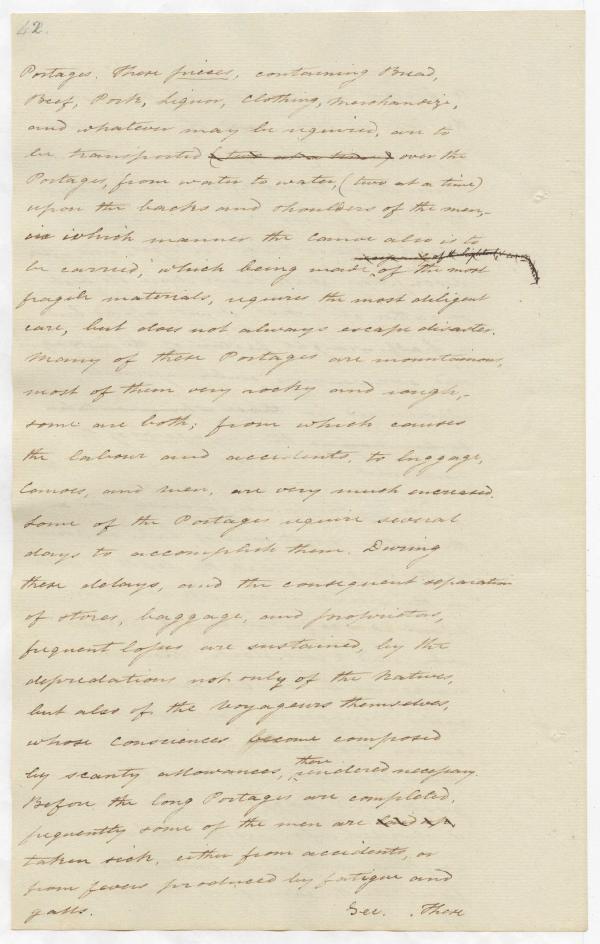 42.
Portages. These pieces, containing Bread,
Beef, Pork, Liquor, Clothing, Merchandize,
and whatever may be required, are to
be transported (two at a time) over the
Portages, from water to water, (two at a time)
upon the backs and shoulders of the men,
in which manner the Canoe also is to
be carried, which being made of the most
fragile materials, requires the most diligent
care, but does not always escape disaster.
Many of these Portages are mountainous,
most of them very rocky and rough,
some are both; from which causes
the labour and accidents, to luggage,
Canoes, and men, are very much increased.
Some of the Portages require several
days to accomplish them. During
these delays, and the consequent separation
of stores, baggage, and proprietors,
frequent losses are sustained, by the
depredations not only of the Natives,
but also of the Voyageurs themselves,
whose consciences become composed
by scanty allowances, there
rendered necessary.
Before the long Portages are completed,
frequently some of the men are laid up
taken sick, either from accidents, or
from fevers produced by fatigue and
galls. These